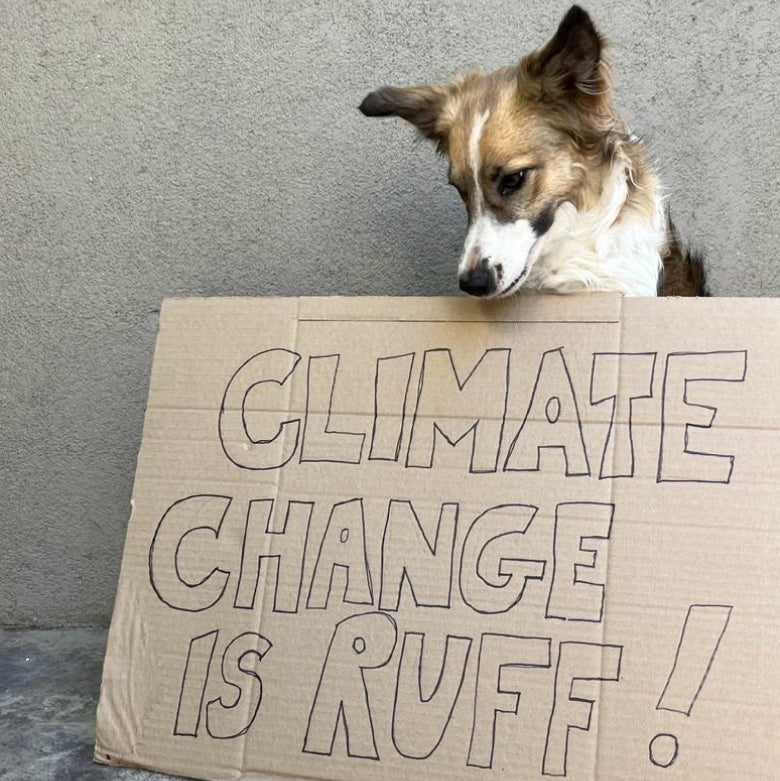 CLIMATE
CHANGE
IS RUFF!